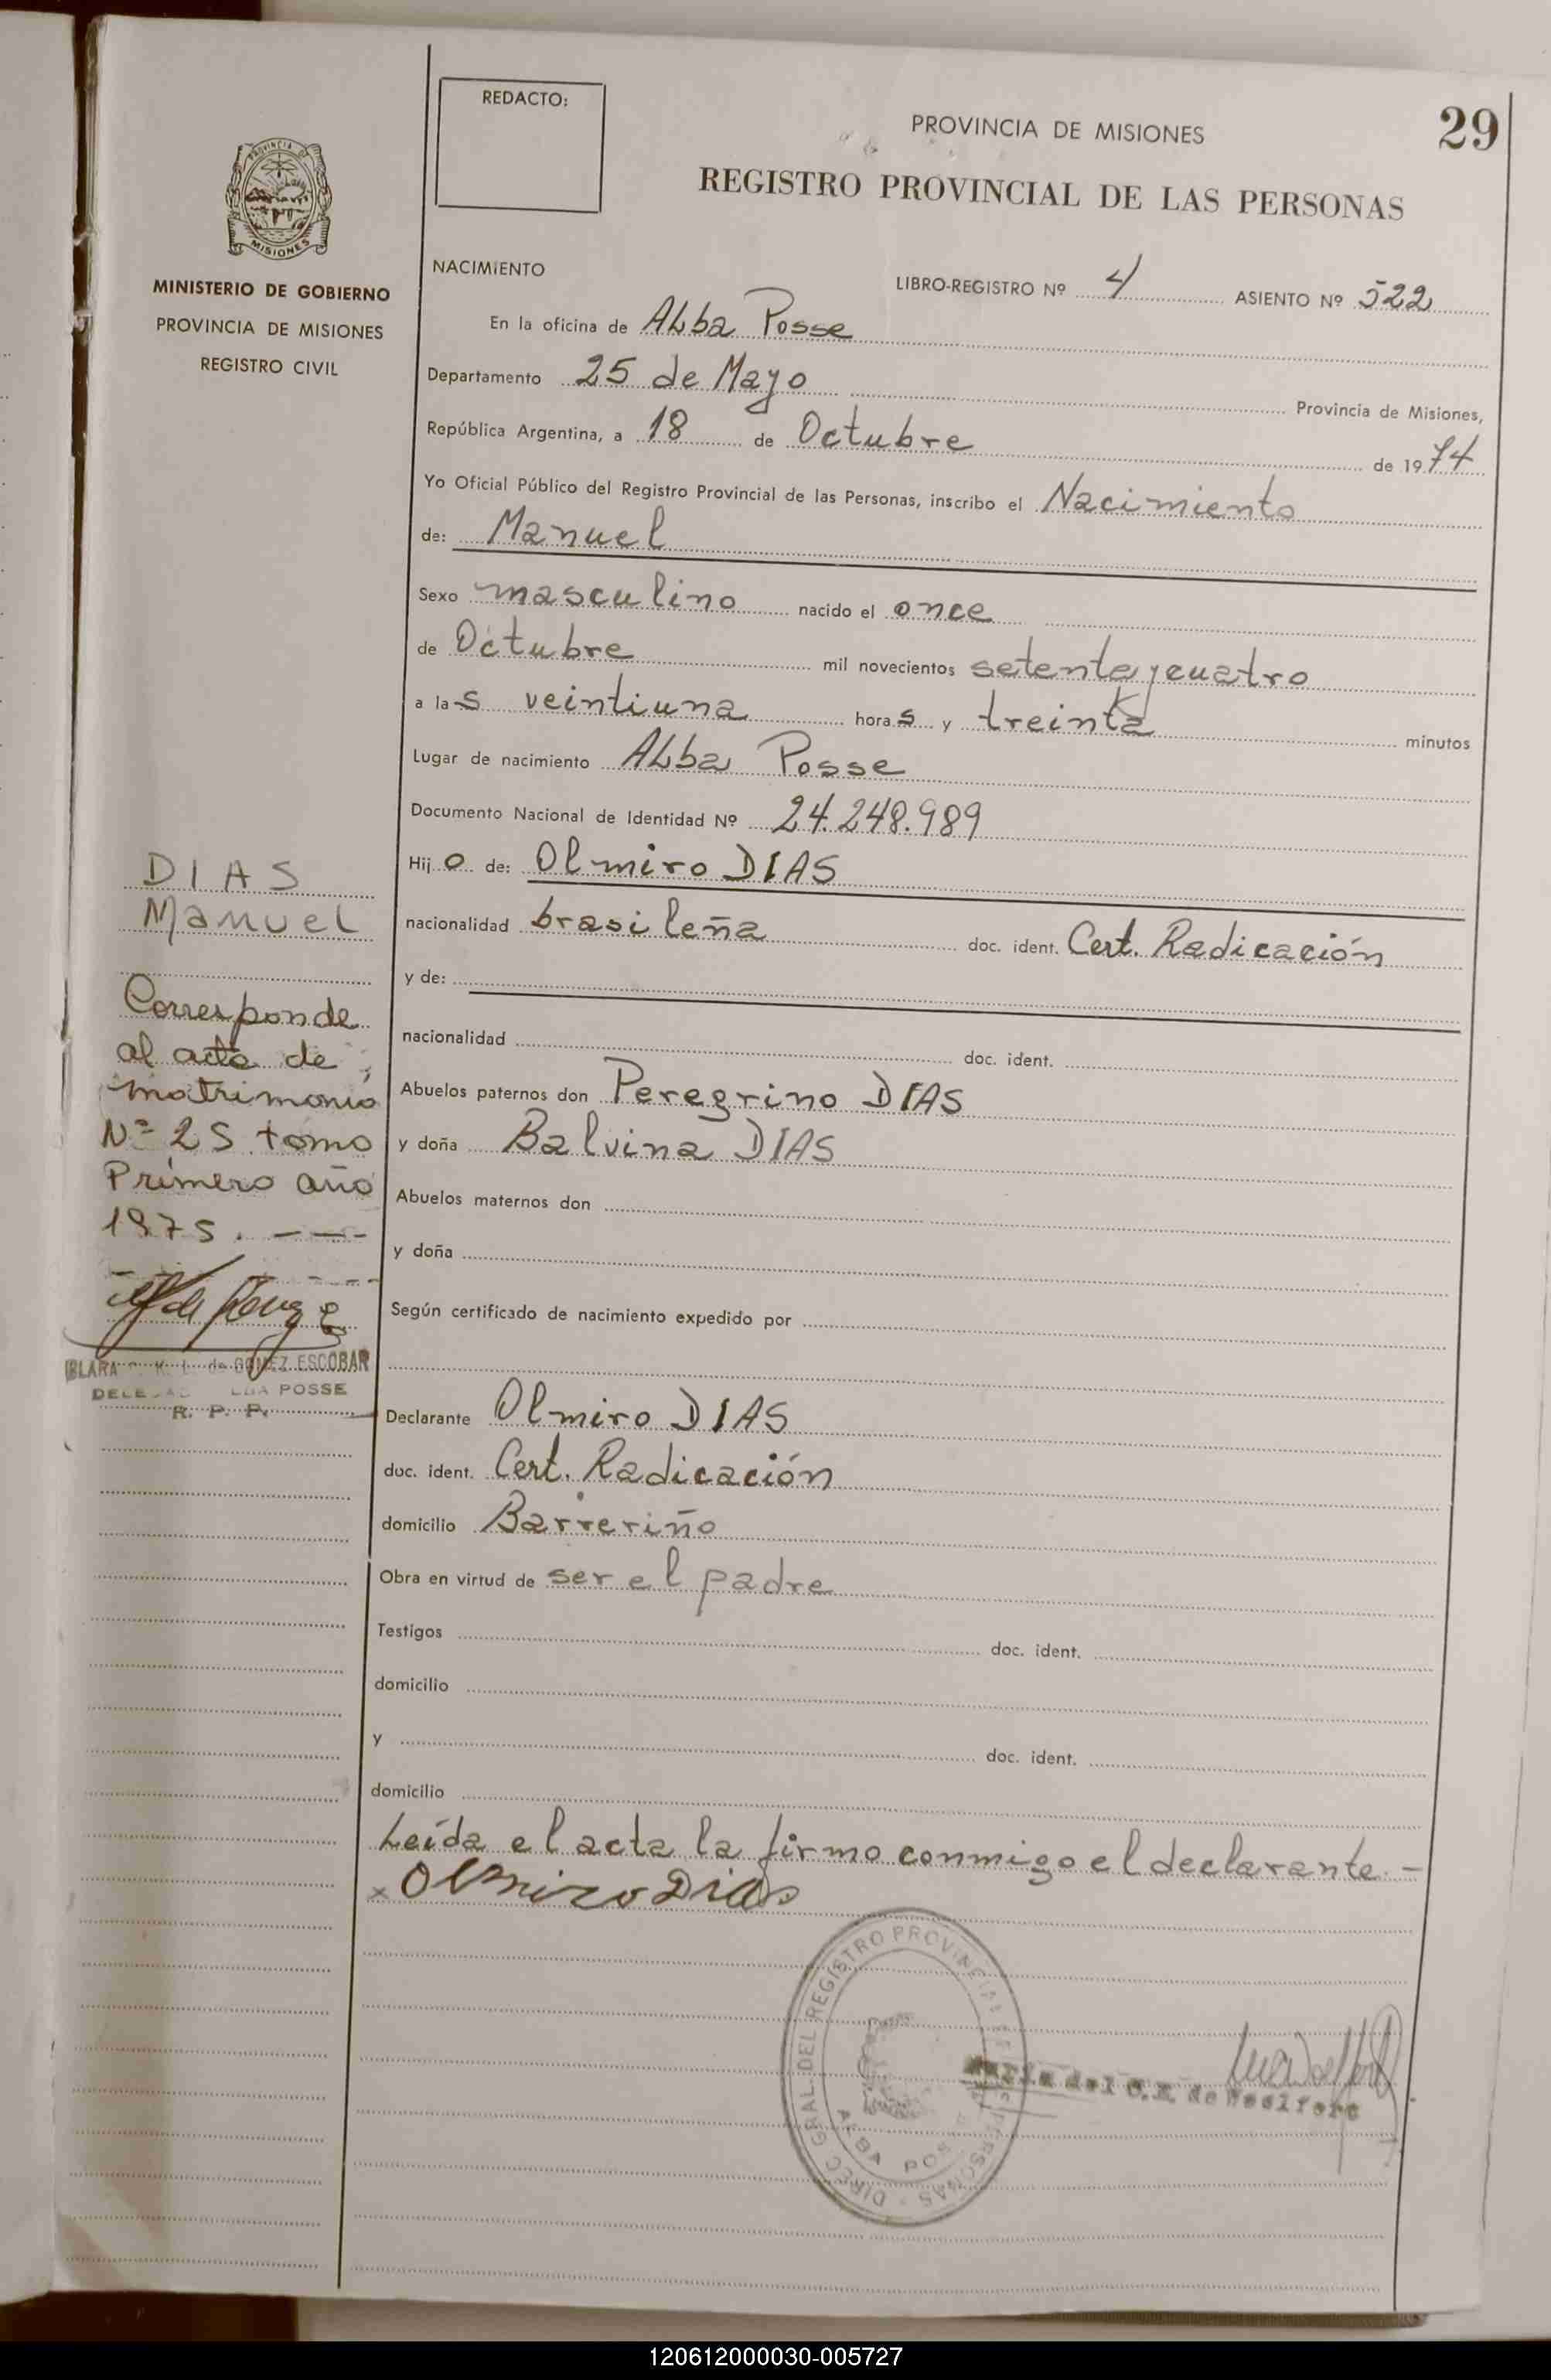 REDACTO:
PROVINCIA DE MISIONES
29
REGISTRO PROVINCIAL DE LAS PERSONAS
PROVINCIA DE
MISIONES
MINISTERIO DE GOBIERNO
PROVINCIA DE MISIONES
REGISTRO CIVIL
NACIMIENTO
LIBRO-REGISTRO Nº 4 ASIENTO Nº 522
En la oficina de Alba Posse
Departamento 25 de Mayo Provincia de Misiones,
República Argentina, a 18 de Octubre de 1974
Yo Oficial Público del Registro Provincial de las Personas, inscribo el Nacimiento
de: Manuel
Sexo masculino nacido el once
de Octubre mil novecientos setenta y cuatro
a las veintiuna horas y treinta minutos
Lugar de nacimiento Alba Posse
Documento Nacional de Identidad Nº 24.248.989
Hijo de: Olmiro DIAS
nacionalidad brasileña doc. ident. Cert. Radicación
y de:
nacionalidad doc. ident.
Abuelos paternos don Peregrino DIAS
y doña Balvina DIAS
Abuelos maternos don
y doña
Según certificado de nacimiento expedido por
Declarante Olmiro DIAS
doc. ident. Cert. Radicación
domicilio Barreriño
Obra en virtud de ser el padre
Testigos doc. ident.
domicilio
y doc. ident.
domicilio
Leída el acta la firmo conmigo el declarante.-
x Olmiro Dias
DIAS
Manuel
Corresponde
al acta de
matrimonio
Nº 25 tomo
Primero año
1975. ---
CLARA K. L. de GOMEZ ESCOBAR
POSSE
R. P. P.
DIREC GRAL. DEL REGISTRO PROVINCIAL DE LAS PERSONAS
ALBA POSSE
María del C. R. de
120612000030-005727